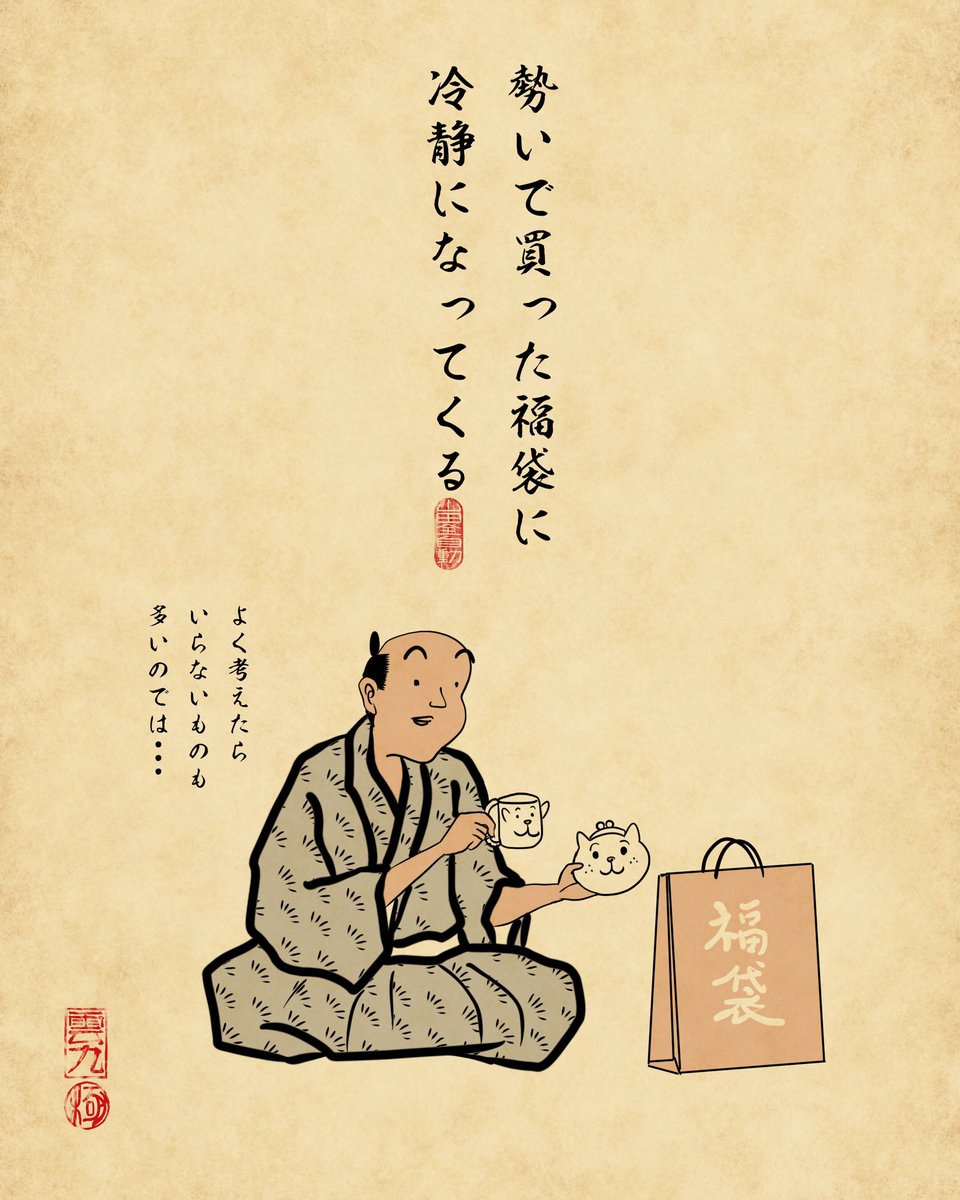 勢いで買った福袋に
冷静になってくる
よく考えたら
いらないものも
多いのでは・・・
福袋